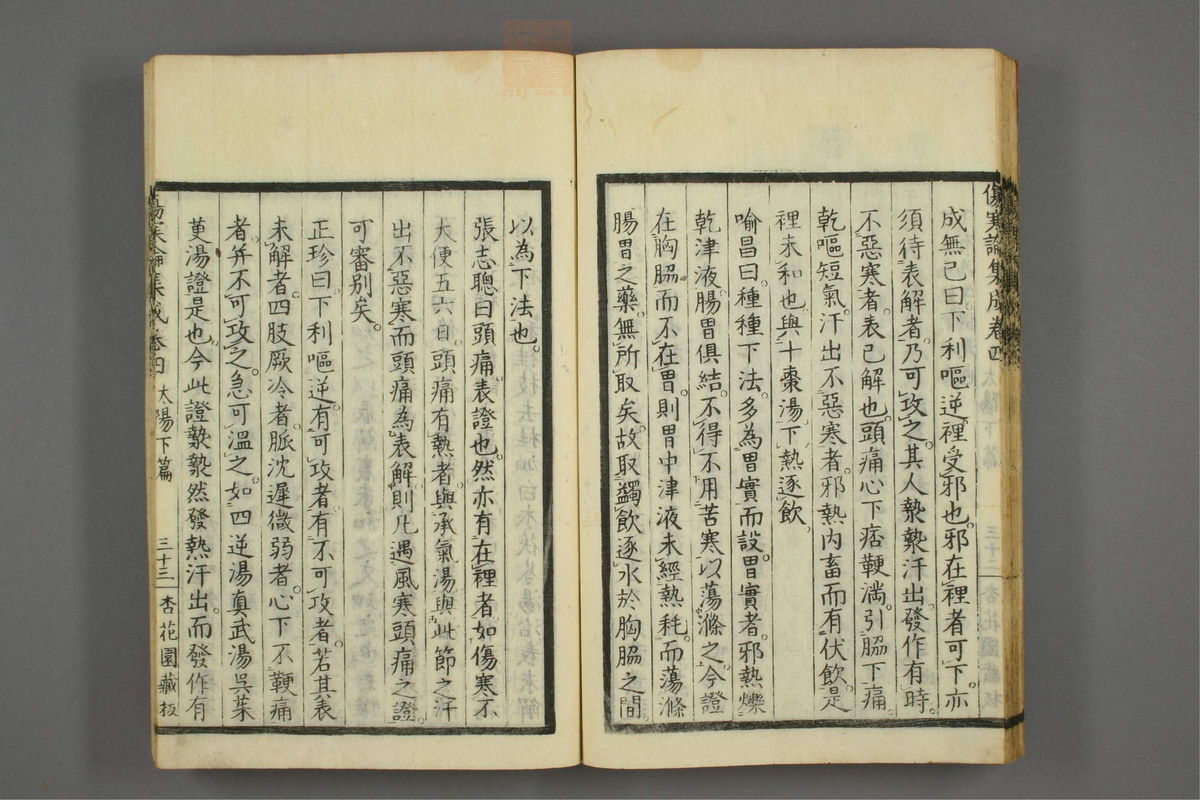 傷寒論集成卷四
成無己曰。下利嘔逆。裡受邪也。邪在裡者可下。亦
須待表解者。乃可攻之。其人漐漐汗出。發作有時。
不惡寒者。表已解也。頭痛心下痞鞕滿。引脇下痛。
乾嘔短氣。汗出不惡寒者。邪熱內畜而有伏飲。是
裡未和也。與十棗湯下熱逐飲。
喻昌曰。種種下法。多為胃實而設。胃實者。邪熱爍
乾津液。腸胃俱結。不得不用苦寒以蕩滌之。今證
在胸脇而不在胃。則胃中津液未經熱耗。而蕩滌
腸胃之藥。無所取矣。故取蠲飲逐水於胸脇之間。
以為下法也。
張志聰曰。頭痛。表證也。然亦有在裡者。如傷寒不
大便五六日。頭痛有熱者。與承氣湯。與此節之汗
出不惡寒而頭痛為表解。則凡遇風寒頭痛之證。
可審別矣。
正珍曰。下利嘔逆。有可攻者。有不可攻者。若其表
未解者。四肢厥冷者。脈沈遲微弱者。心下不鞕痛
者。并不可攻之。急可溫之。如四逆湯真武湯吳茱
萸湯證是也。今此證漐漐然發熱汗出。而發作有
傷寒論集成卷四 太陽下篇 三十三 杏花園藏板